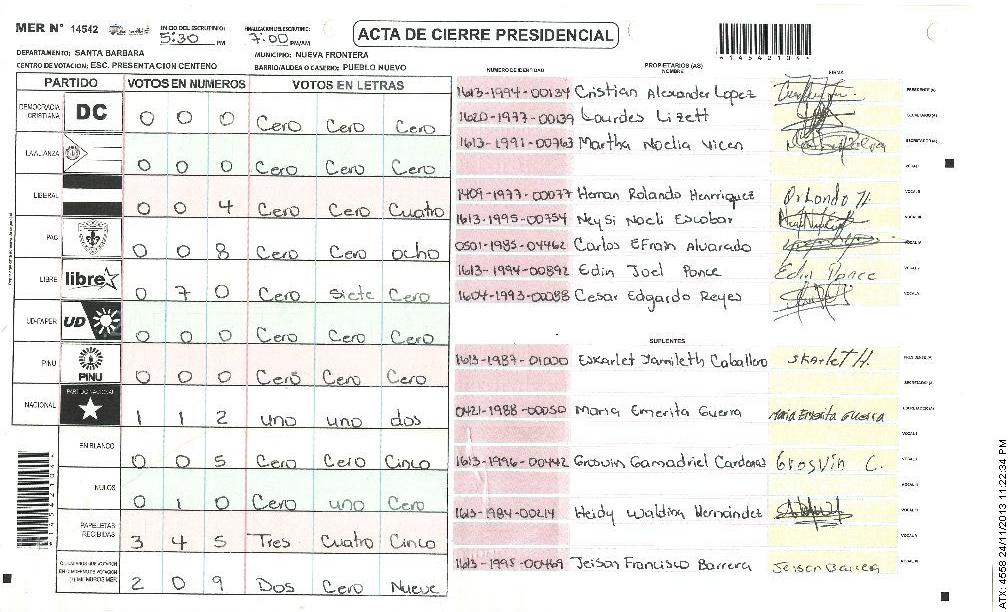 MER N° 14542
INICIO DEL ESCRUTINIO: 5:30 PM
FINALIZACION DEL ESCRUTINIO: 7:00 PM/AM
ACTA DE CIERRE PRESIDENCIAL
DEPARTAMENTO: SANTA BARBARA
MUNICIPIO: NUEVA FRONTERA
CENTRO DE VOTACION: ESC. PRESENTACION CENTENO
BARRIO/ALDEA O CASERIO: PUEBLO NUEVO
PARTIDO VOTOS EN NUMEROS VOTOS EN LETRAS
DEMOCRACIA CRISTIANA DC 0 0 0 Cero Cero Cero
LA ALIANZA 0 0 0 Cero Cero Cero
LIBERAL 0 0 4 Cero Cero Cuatro
PAC 0 0 8 Cero Cero ocho
LIBRE libre 0 7 0 Cero siete Cero
UD-FAPER UD 0 0 0 Cero Cero Cero
PINU PINU 0 0 0 Cero Cero Cero
NACIONAL PARTIDO NACIONAL 1 1 2 uno uno dos
EN BLANCO 0 0 5 Cero Cero Cinco
NULOS 0 1 0 Cero uno Cero
PAPELETAS RECIBIDAS 3 4 5 Tres Cuatro Cinco
2 0 9 Dos Cero Nueve
NUMERO DE IDENTIDAD PROPIETARIOS (AS) NOMBRE FIRMA
1613-1994-00134 Cristian Alexander Lopez
1620-1977-00139 Lourdes Lizett
1613-1991-00763 Martha Noelia Vicen
1409-1977-00077 Hernan Rolando Henriquez Orlando H.
1613-1995-00754 Neysi Noeli Escobar
0501-1985-04462 Carlos Efrain Alvarado
1613-1994-00892 Edin Joel Ponce Edin Ponce
1604-1993-00088 Cesar Edgardo Reyes
SUPLENTES
1613-1987-01000 Eskarlet Jamileth Caballero Skarlet H.
0421-1988-00050 Maria Emerita Guerra Maria Emerita Guerra
1613-1996-00442 Grosvin Gamadriel Cardenas Grosvin C.
1613-1984-00214 Heidy Waldina Hernandez
1613-1995-00469 Jeison Francisco Barrera Jeison Barrera
ATX: 4558 24/11/2013 11:22:34 PM